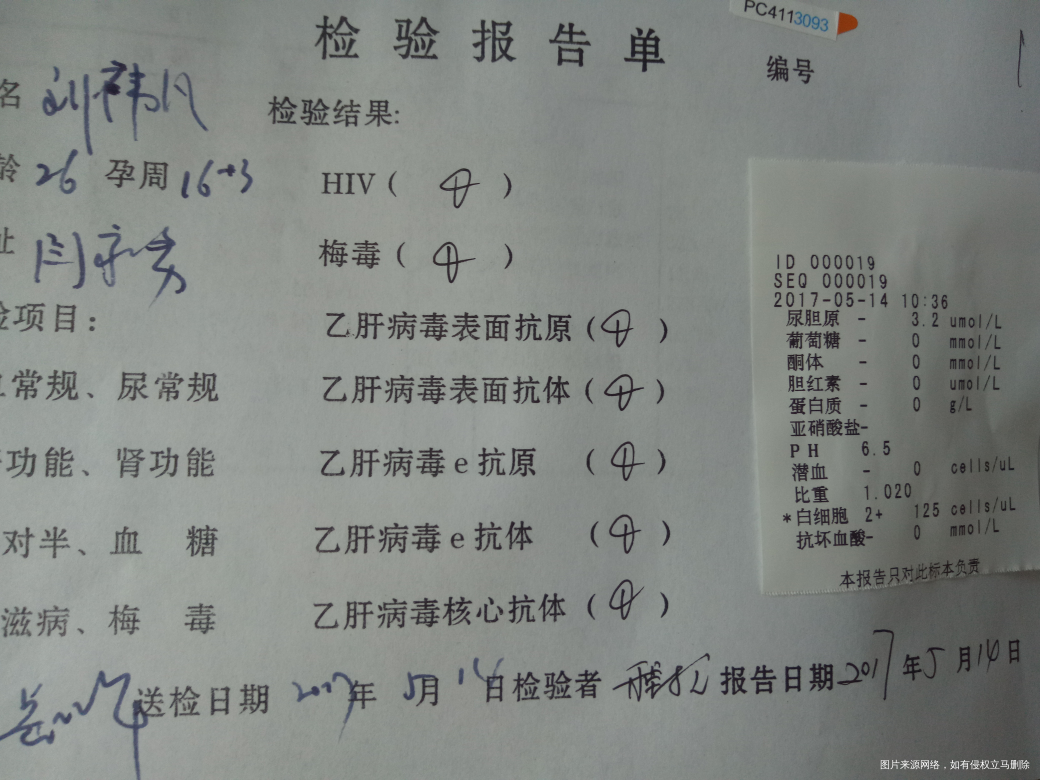 PC4113093
检验报告单
编号
名 刘
检验结果:
龄 26 孕周 16+3
HIV ( )
址
梅毒 ( )
检项目:
乙肝病毒表面抗原 ( )
血常规、尿常规
乙肝病毒表面抗体 ( )
肝功能、肾功能
乙肝病毒 e 抗原 ( )
对半、血 糖
乙肝病毒 e 抗体 ( )
滋病、梅 毒
乙肝病毒核心抗体 ( )
送检日期 2017年 5月 14日 检验者 报告日期 2017年5月14日
ID 000019
SEQ 000019
2017-05-14 10:36
尿胆原 - 3.2 umol/L
葡萄糖 - 0 mmol/L
酮体 - 0 mmol/L
胆红素 - 0 umol/L
蛋白质 - 0 g/L
亚硝酸盐-
PH 6.5
潜血 - 0 cells/uL
比重 1.020
*白细胞 2+ 125 cells/uL
抗坏血酸- 0 mmol/L
本报告只对此标本负责
图片来源网络，如有侵权立马删除